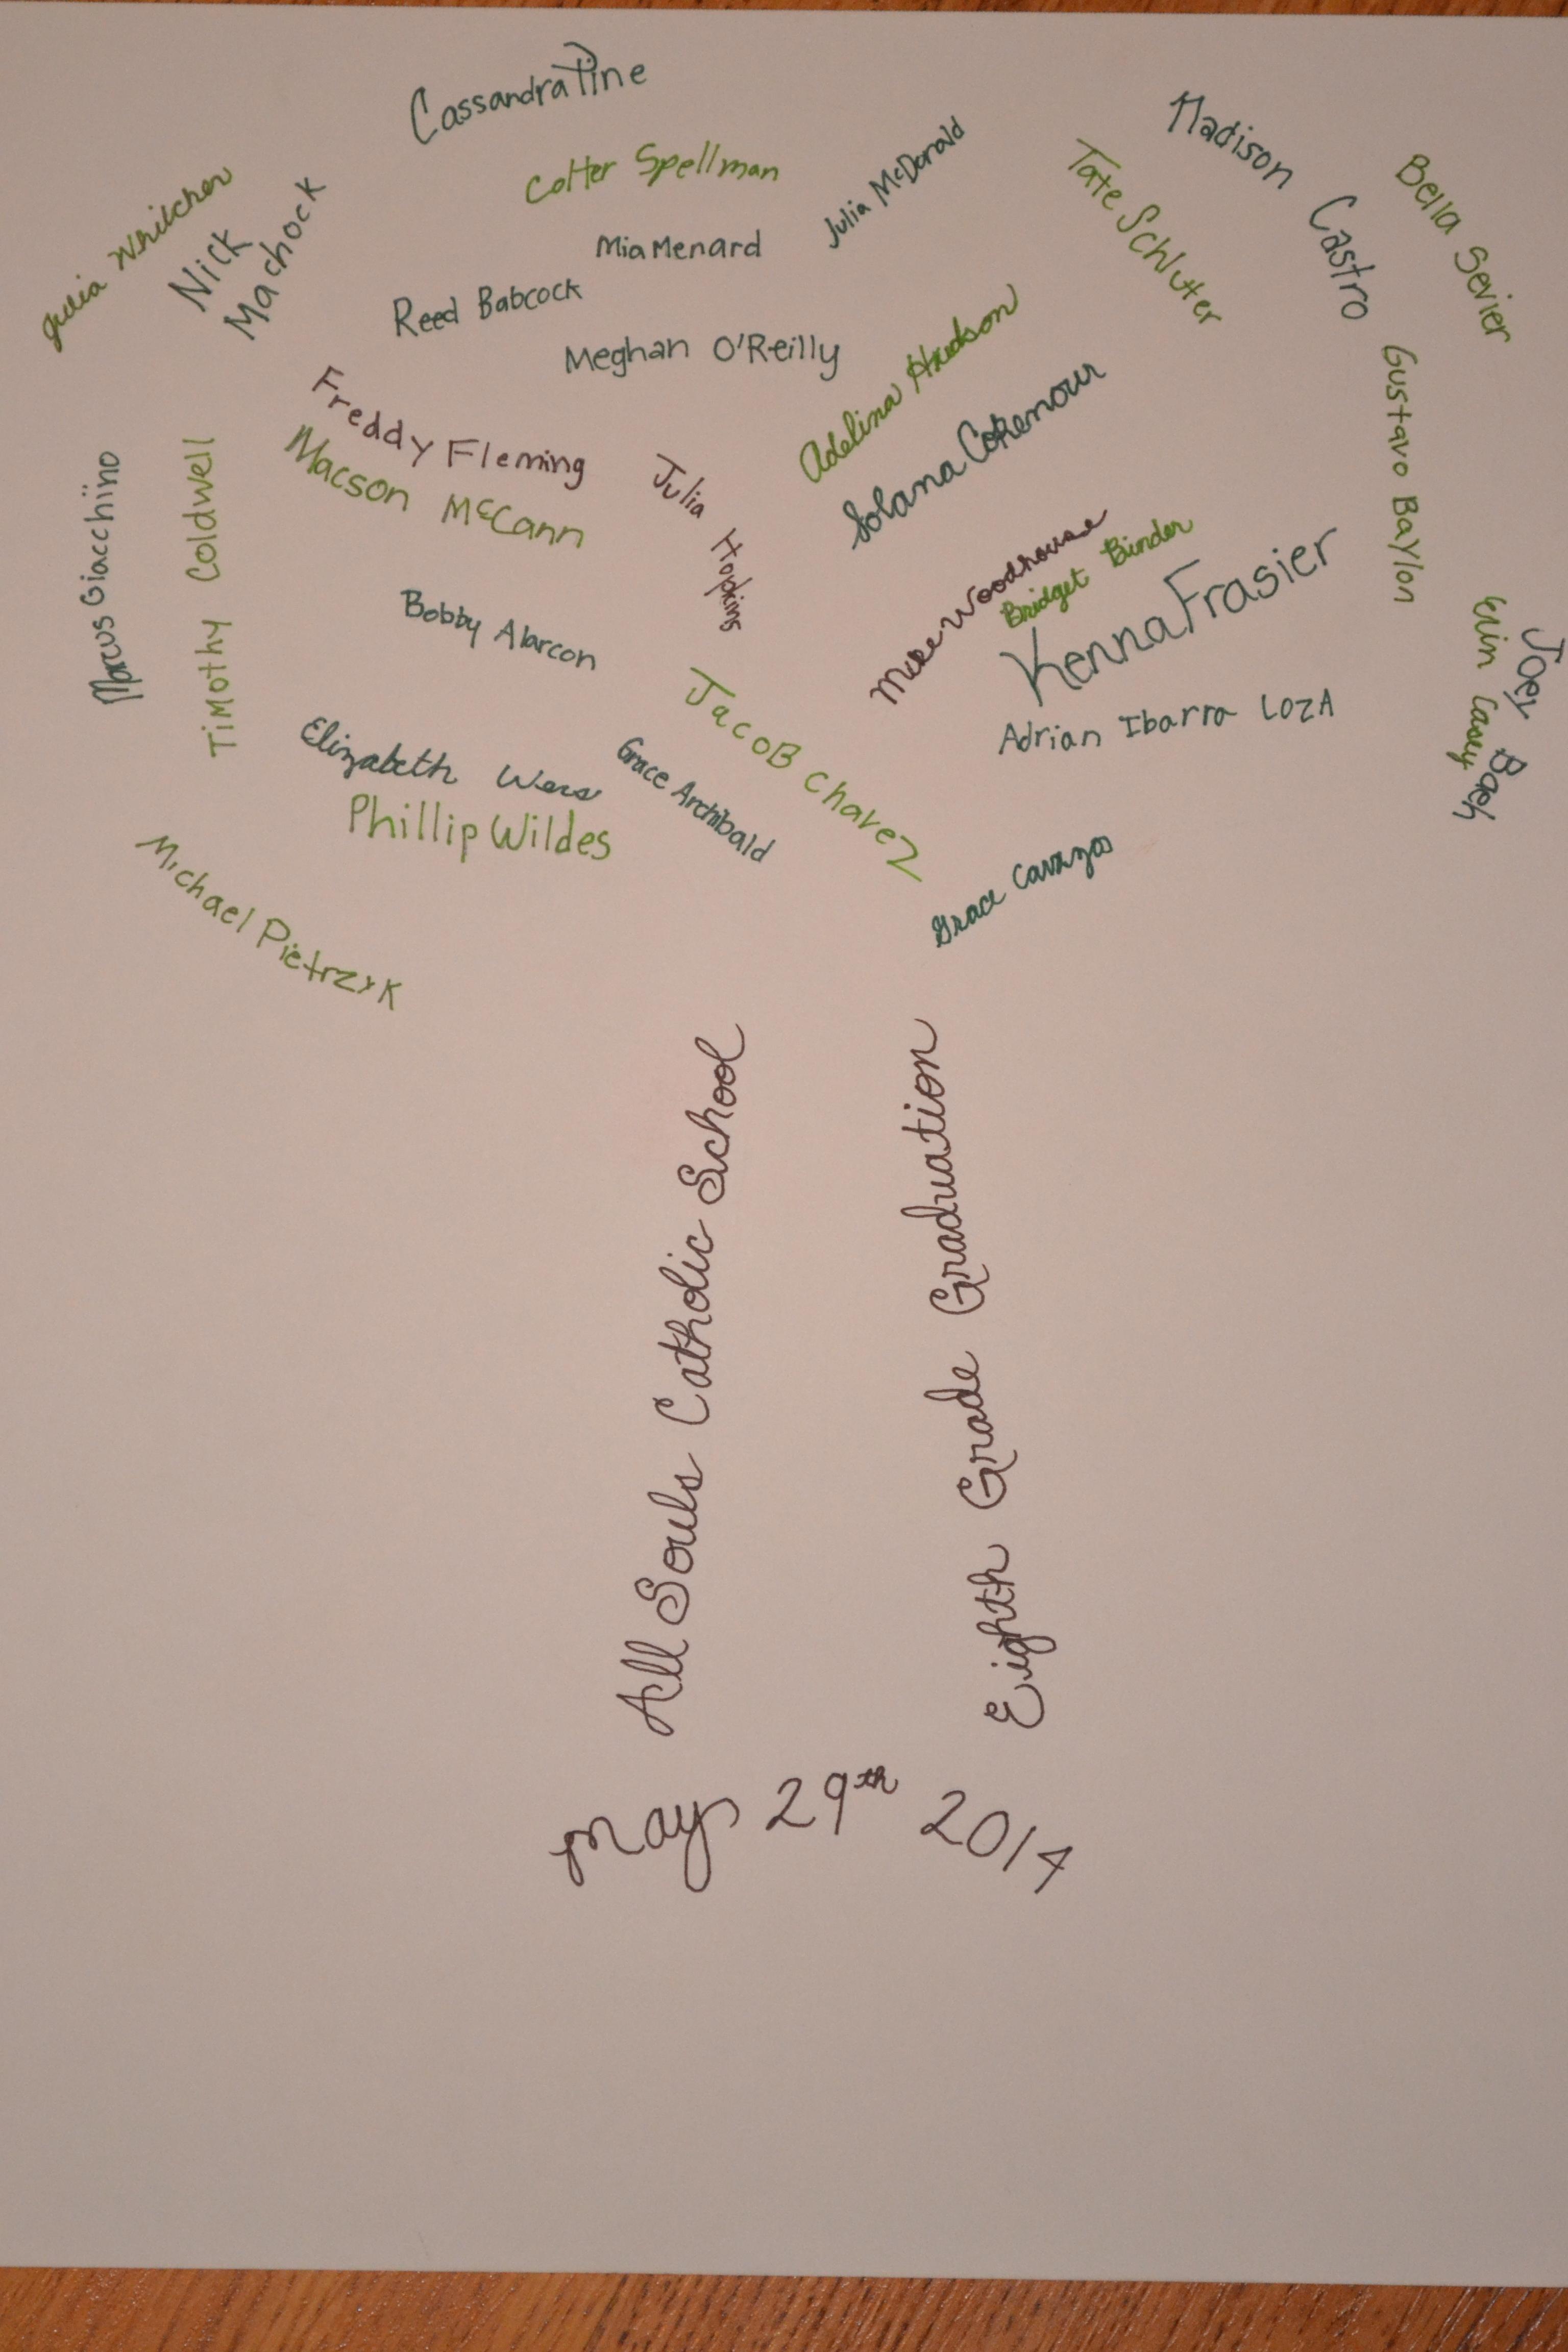 Cassandra Pine
Colter Spellman
Julia McDonald
Madison Castro
Tate Schluter
Bella Sevier
Julia Whilcher
Nick Machock
Mia Menard
Reed Babcock
Meghan O'Reilly
Adelina Hudson
Solana Cokenour
Gustavo Baylon
Freddy Fleming
Macson McCann
Julia Hopkins
Marcus Giacchino
Timothy Coldwell
Mike Woodhouse
Bridget Binder
Kenna Frasier
Bobby Alarcon
Erin Casey
Joey Bach
Adrian Ibarra LOZA
Jacob Chavez
Elizabeth
Grace Archibald
Phillip Wildes
Grace Cavazos
Michael Pietrzyk
All Souls Catholic School
Eighth Grade Graduation
May 29th 2014